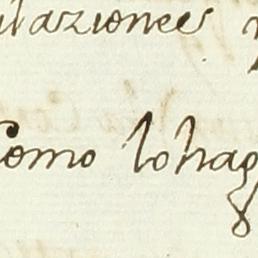 ilaziones
Como lo hag